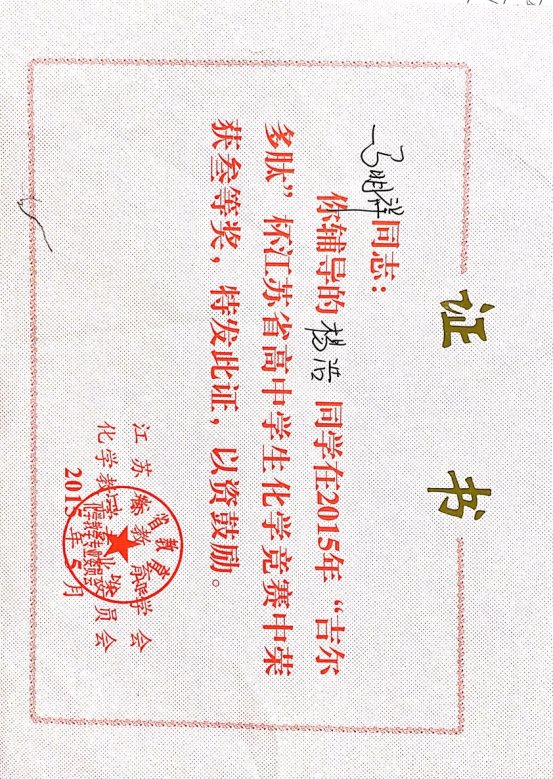 证 书
马明祥同志：
你辅导的 杨浩 同学在2015年“吉尔
多肽”杯江苏省高中学生化学竞赛中荣
获叁等奖，特发此证，以资鼓励。
江苏省教育学会
化学教学专业委员会
2015年5月